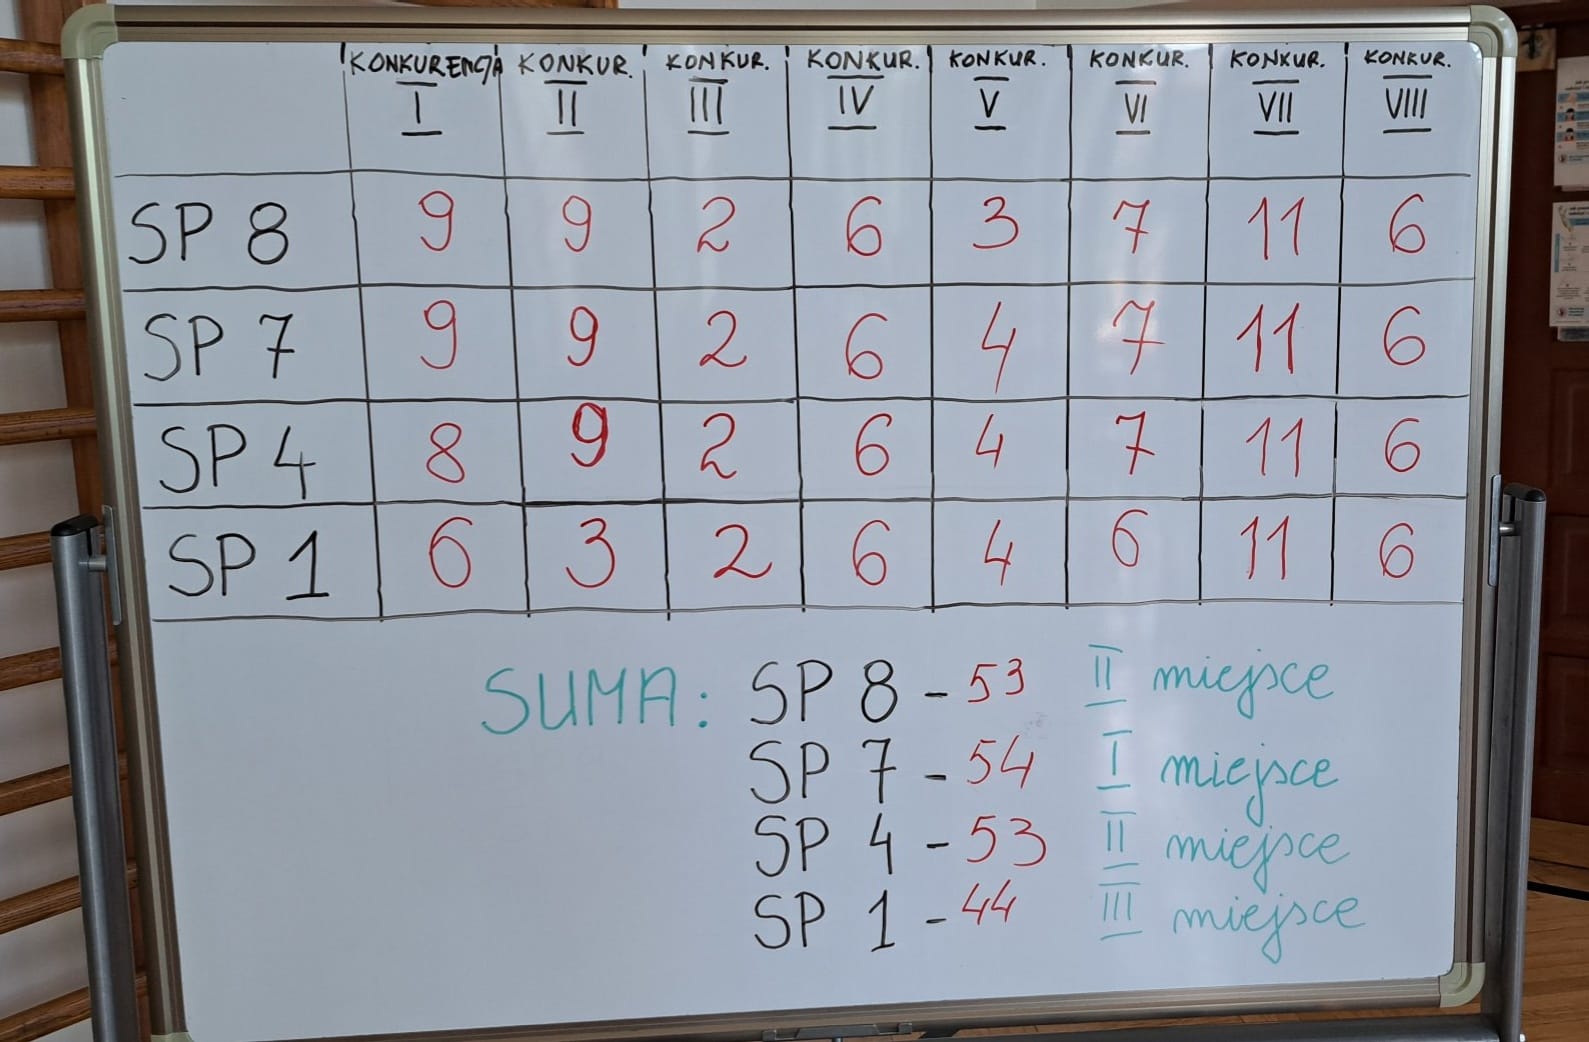 KONKURENCJA KONKUR. KONKUR. KONKUR. KONKUR. KONKUR. KONKUR. KONKUR.
I II III IV V VI VII VIII
SP 8 9 9 2 6 3 7 11 6
SP 7 9 9 2 6 4 7 11 6
SP 4 8 9 2 6 4 7 11 6
SP 1 6 3 2 6 4 6 11 6
SUMA: SP 8 - 53 II miejsce
SP 7 - 54 I miejsce
SP 4 - 53 II miejsce
SP 1 - 44 III miejsce